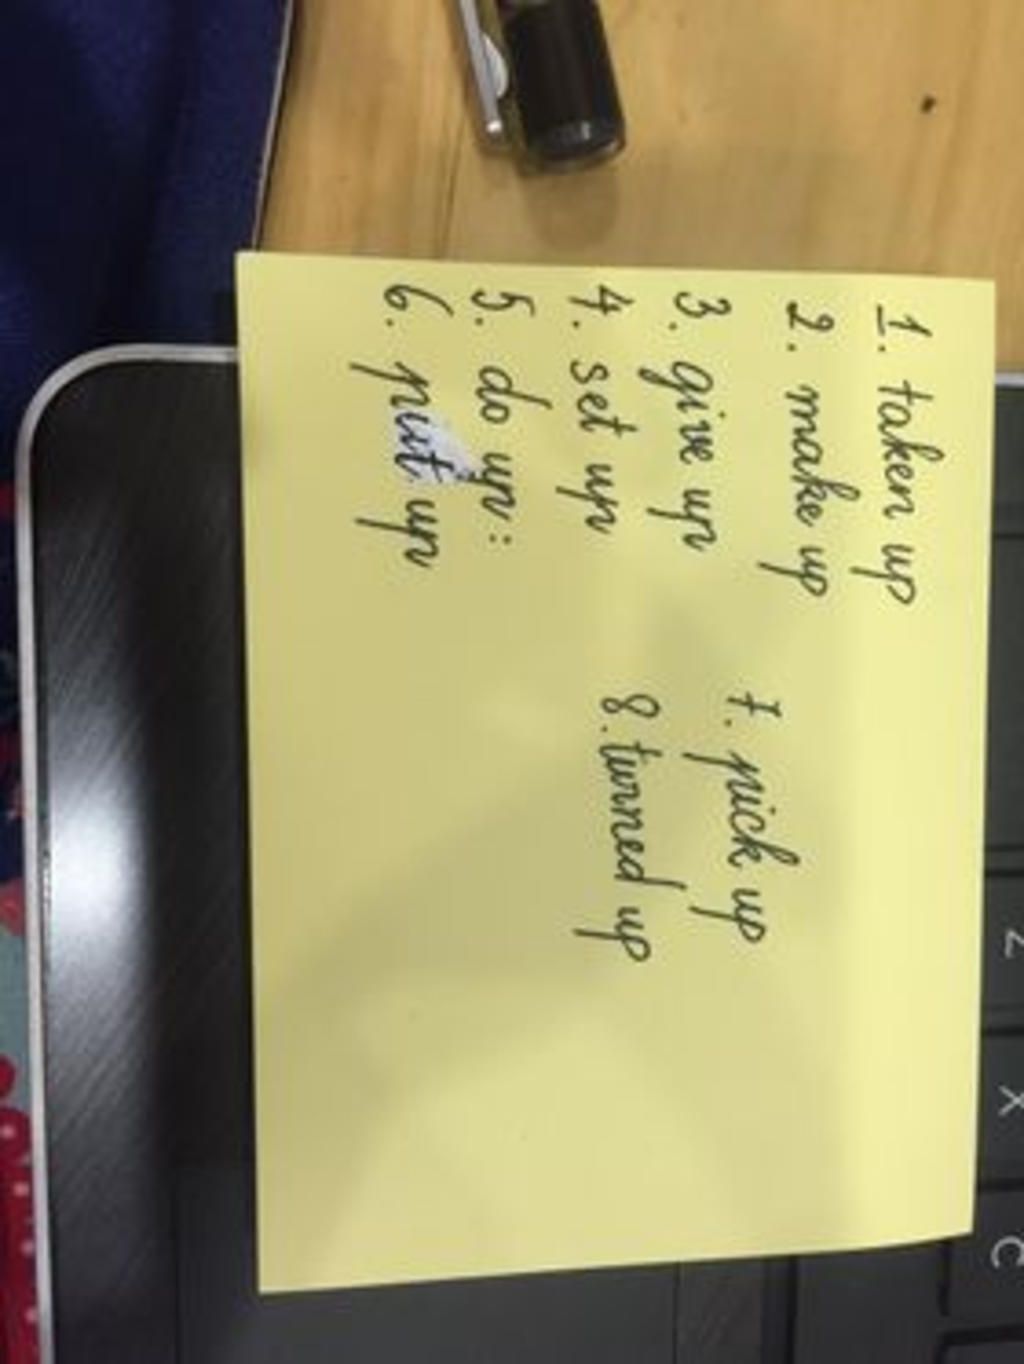 1. taken up
2. make up
3. give up
4. set up
5. do up:
6. put up
7. pick up
8. turned up
Z
X
C